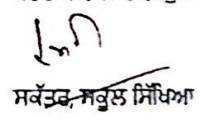 ਸਕੱਤਰ, ਸਕੂਲ ਸਿੱਖਿਆ